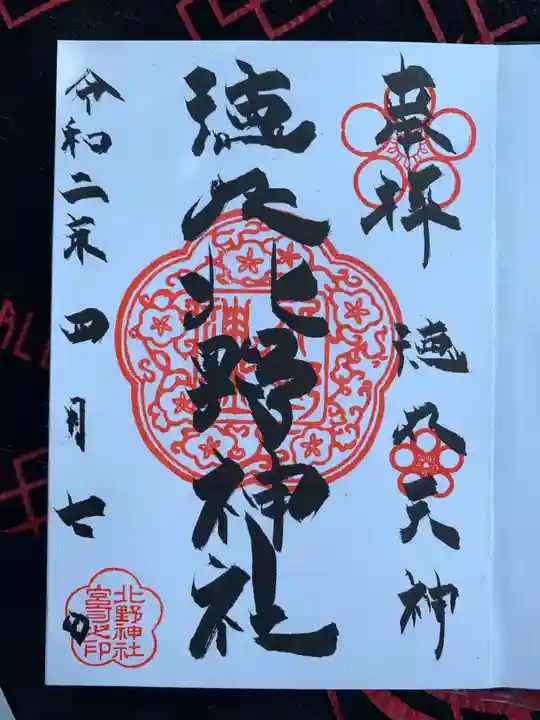 奉拝
徳丸天神
徳丸北野神社
令和二年四月七日
北野神社
宮司之印